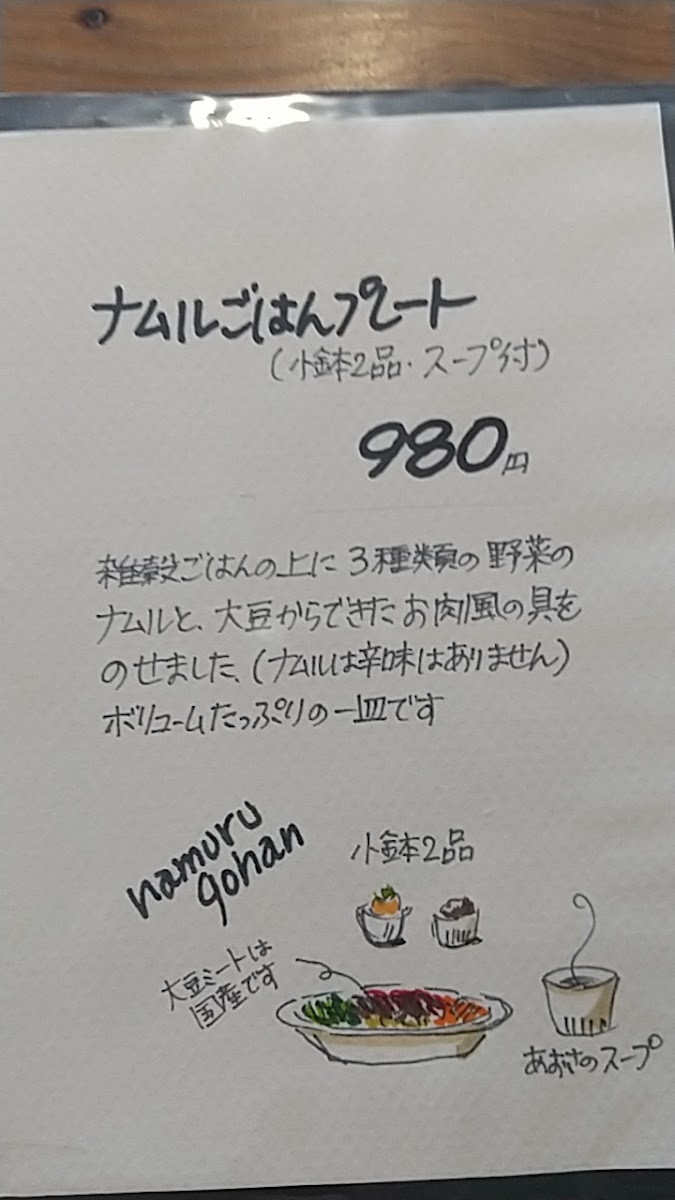 ナムルごはんプレート
(小鉢2品・スープ付)
980円
雑穀ごはんの上に3種類の野菜の
ナムルと、大豆からできたお肉風の具を
のせました、(ナムルは辛味はありません)
ボリュームたっぷりの一皿です
namuru
gohan
小鉢2品
大豆ミートは
国産です
あおさのスープ